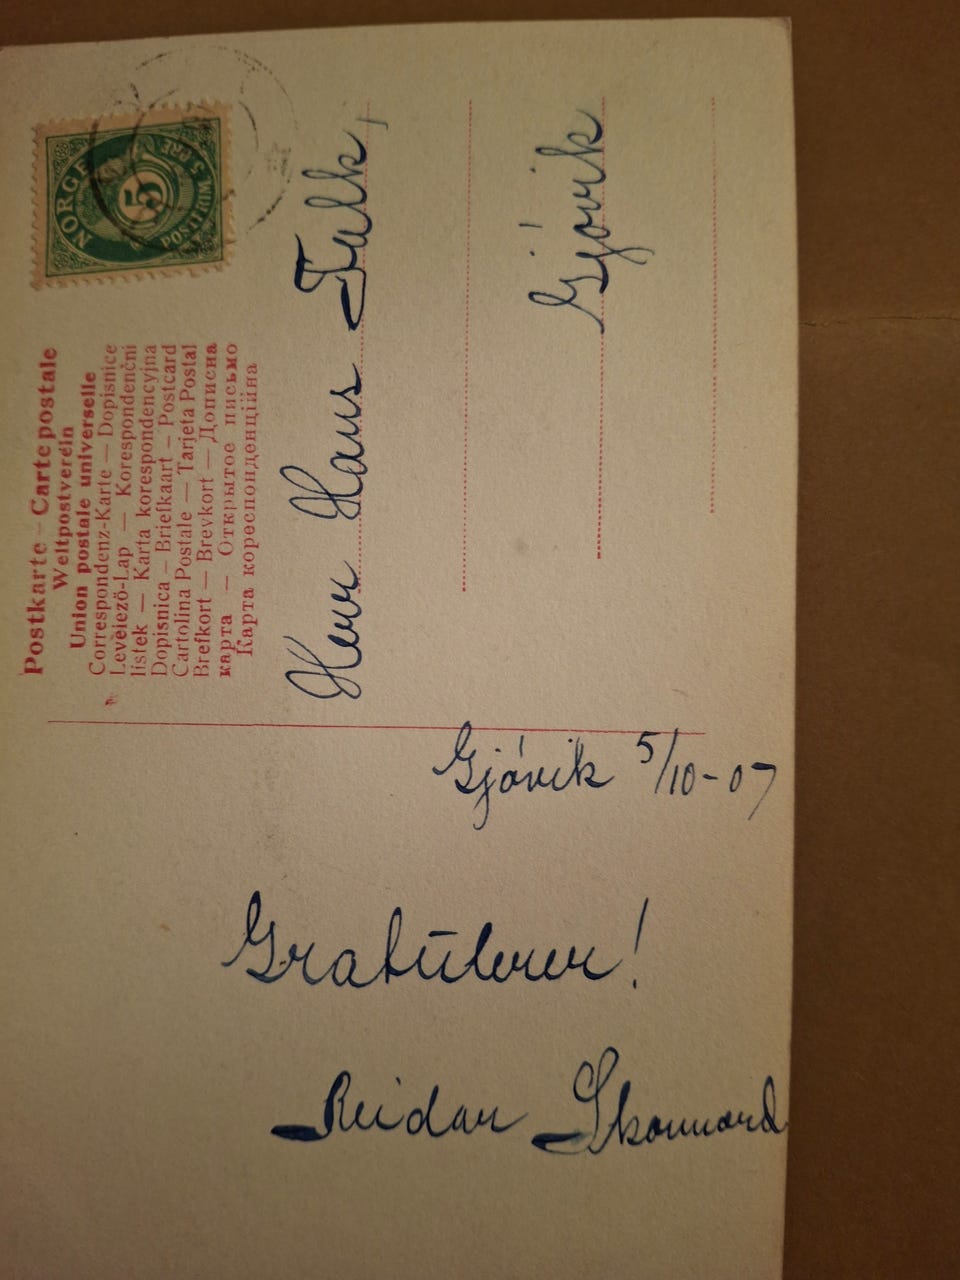 Postkarte — Carte postale
Weltpostverein
Union postale universelle
Correspondenz-Karte — Dopisnice
Levèlező-Lap — Korespondenční
lístek — Karta korespondencyjna
Dopisnica — Briefkaart — Postcard
Cartolina Postale — Tarjeta Postal
Brefkort — Brevkort — Дописна
карта — Открытое письмо
Карта кореспонденційна
NORGE
5
POSTFRIM. 5 ØRE
Herr Hans Falk,
Gjóvik
Gjóvik 5/10-07
Gratŭlerer!
Reidar